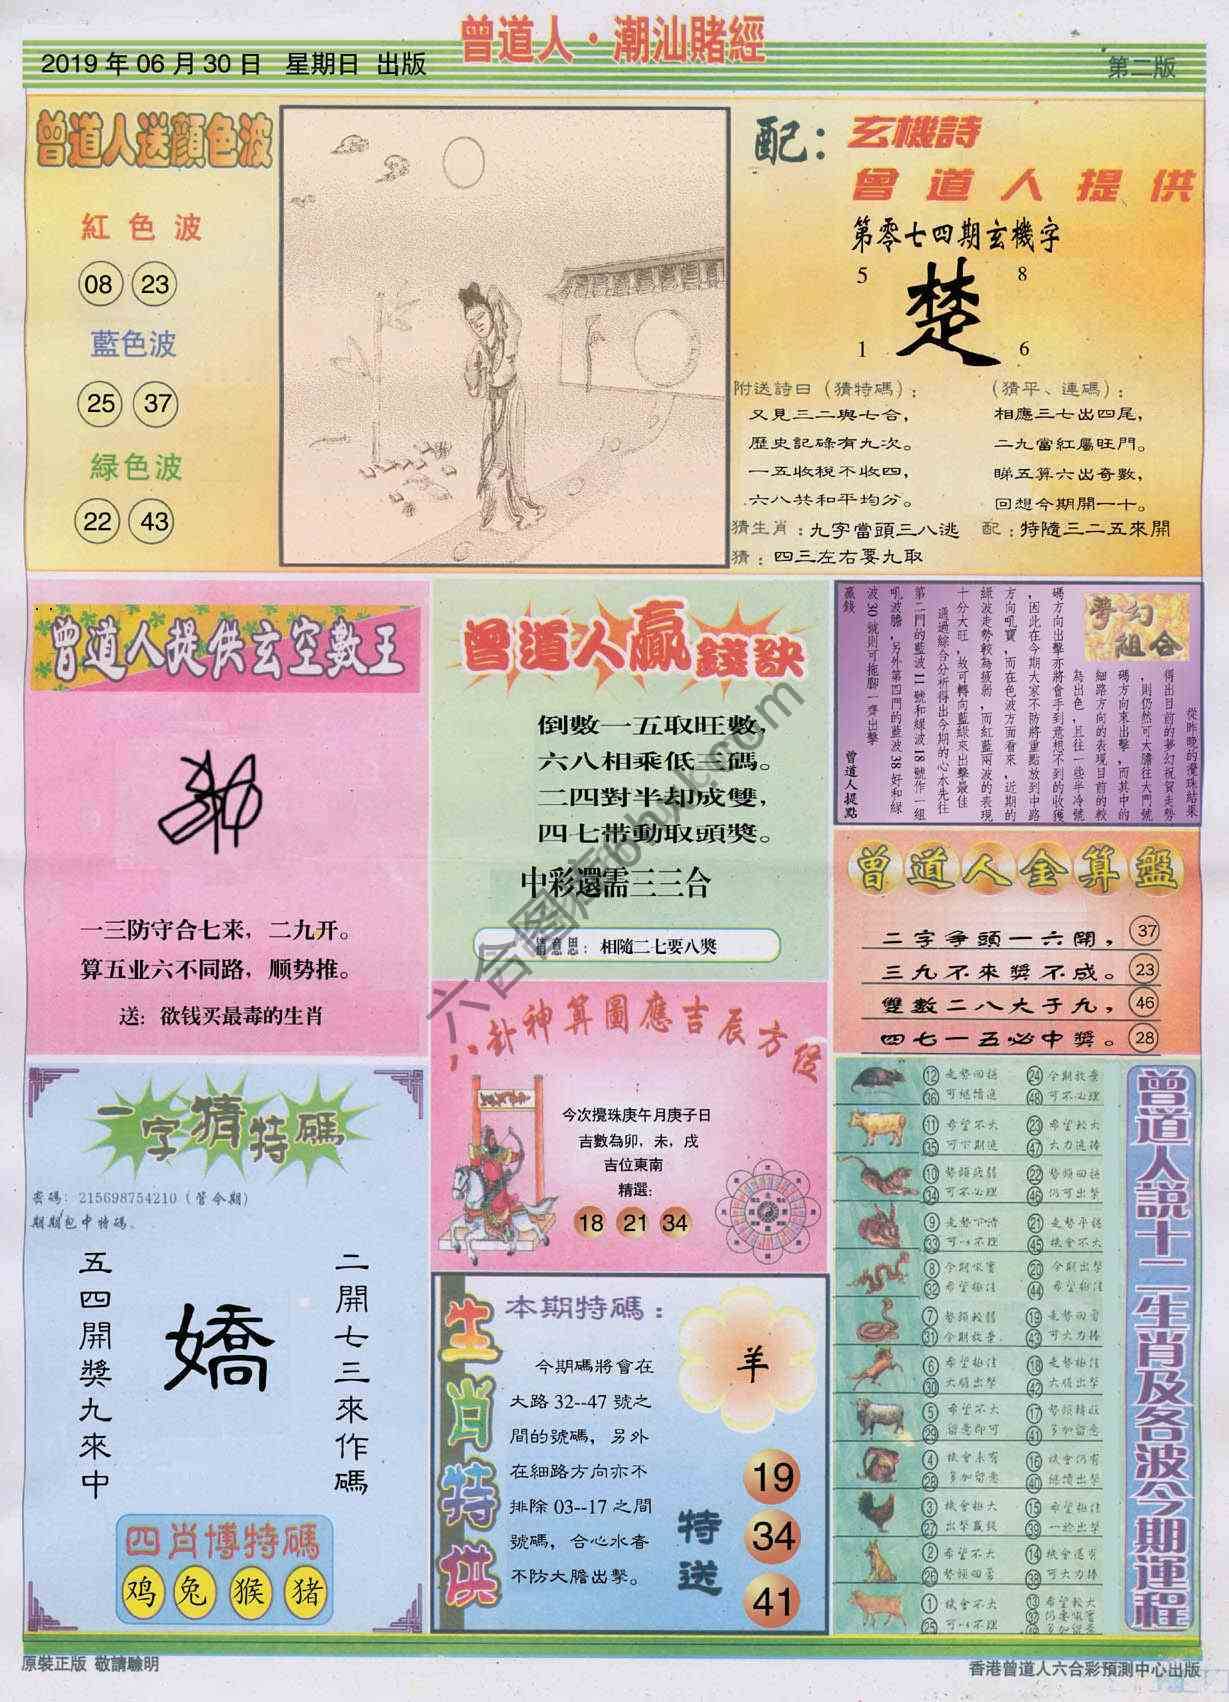 曾道人·潮汕賭經
2019 年 06 月 30 日 星期日 出版
第二版
曾道人送顏色波
紅色波
08 23
藍色波
25 37
緑色波
22 43
配：玄機詩
曾道人提供
第零七四期玄機字
5 8
楚
1 6
附送詩曰（猜特碼）：
又見三二與七合，
歷史記碌有九次。
一五收稅不收四，
六八共和平均分。
（猜平、連碼）：
相應三七出四尾，
二九當紅屬旺門。
睇五算六出奇數，
回想今期開一十。
猜生肖：九字當頭三八逃
配：特隨三二五來開
猜：四三左右要九取
曾道人提供玄空數王
一三防守合七来，二九开。
算五业六不同路，顺势推。
送：欲钱买最毒的生肖
曾道人贏錢訣
倒數一五取旺數，
六八相乘低三碼。
二四對半却成雙，
四七帶動取頭獎。
中彩還需三三合
猜意思：相隨二七要八獎
夢幻組合
從昨晚的攪珠結果
得出目前的夢幻祝賀走勢
，則仍然可大膽往大門號
碼方向來出擊，而其中的
細路方向的表現目前的較
為出色，且往一些半冷號
碼方向出擊亦將會手到意想不到的收獲
，因此在今期大家不防將重點放到中路
方向吼寶，而在色波方面看來，近期的
綠波走勢較為疲弱，而紅藍兩波的表現
十分大旺，故可轉向藍綠來出擊最佳
通過綜合分析得出今期的心水先往
第二門的藍波 11 號和綠波 18 號作一組
吼波膽，另外第四門的藍波 38 好和綠
波 30 號則可拖腳一齊出擊
贏錢
曾道人提點
曾道人金算盤
二字爭頭一六開， 37
三九不來獎不成。 23
雙數二八大于九， 46
四七一五必中獎。 28
八卦神算圖應吉辰方位
今次攪珠庚午月庚子日
吉數為卯，未，戌
吉位東南
精選：
18 21 34
一字猜特碼
密碼：215698754210（管今期）
期期包中特碼。
二開七三來作碼
嬌
五四開獎九來中
四肖博特碼
鸡 兔 猴 猪
生肖特供
本期特碼：
今期碼將會在
大路 32--47 號之
間的號碼，另外
在細路方向亦不
排除 03--17 之間
號碼，合心水者
不防大膽出擊。
羊
特送
19
34
41
曾道人說十二生肖及各波今期運程
12 走勢回穩 24 今期放棄
36 可繼續追 48 可不必理
11 希望不大 23 希望較大
35 可下期追 47 大力追捧
10 勢頭疲弱 22 勢頭回穩
34 可不必理 46 仍可出擊
9 21 走勢平穩
33 可以不理 45 機會不大
8 20 今期出擊
32 希望極佳 44 希望極佳
7 勢頭較弱 19 走勢回升
31 今期放棄 43 可大力捧
6 希望極佳 18 走勢極佳
30 大膽出擊 42 大膽出擊
5 希望不大 17 勢頭轉旺
29 留意即可 41 多加留意
4 機會未有 16 機會仍有
28 多加留意 40 繼續出擊
3 機會極大 15 希望極佳
27 出擊贏錢 39 一於出擊
2 希望不大 14 機會還有
26 勢頭回勇 38 可大力捧
1 機會不大 13 希望較大
25 可以不理 37
49
原裝正版 敬請驗明
香港曾道人六合彩預測中心出版
六合图库